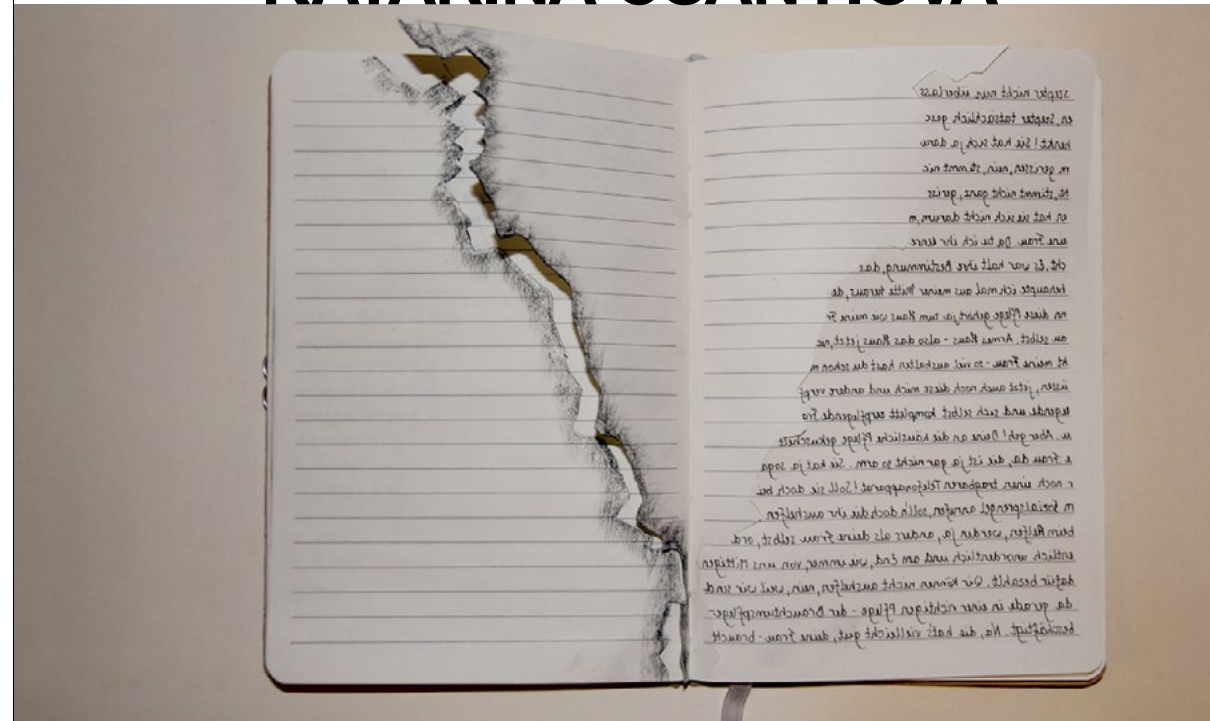 KATARINA
szepter nicht nun überlass
en Szepter tatsächlich gesc
henkt! Sie hat sich ja daru
m gerissen, nein, stimmt nic
ht, stimmt nicht ganz, geriss
en hat sie sich nicht darum, m
eine Frau. Da tu ich ihr Unre
cht. Es war halt ihre Bestimmung, das
behaupte ich mal aus meiner Mitte heraus, de
nn diese Pflege gehört ja zum Haus wie meine Fr
au selbst. Armes Haus - also das Haus jetzt, nic
ht meine Frau - so viel aushalten hast du schon m
üssen, jetzt auch noch diese mich und andere verpf
legende und sich selbst komplett verpflegende Fra
u. Aber geh! Deine an die häusliche Pflege
e Frau da, die ist ja gar nicht so arm. Sie hat ja soga
r noch einen tragbaren Telefonapparat! Soll sie doch bei
m Sozialsprengel anrufen, soll'n doch die ihr aushelfen
beim Helfen, werden ja, anders als deine Frau selbst, ord
entlich unordentlich und am End, wie immer, von uns Mittigen
dafür bezahlt. Wir können nicht aushelfen, nein, weil wir sind
da gerade in einer richtigen Pflege - der Brauchtumspfleger
beschäftigt. Na, die hat's vielleicht gut, deine Frau - braucht